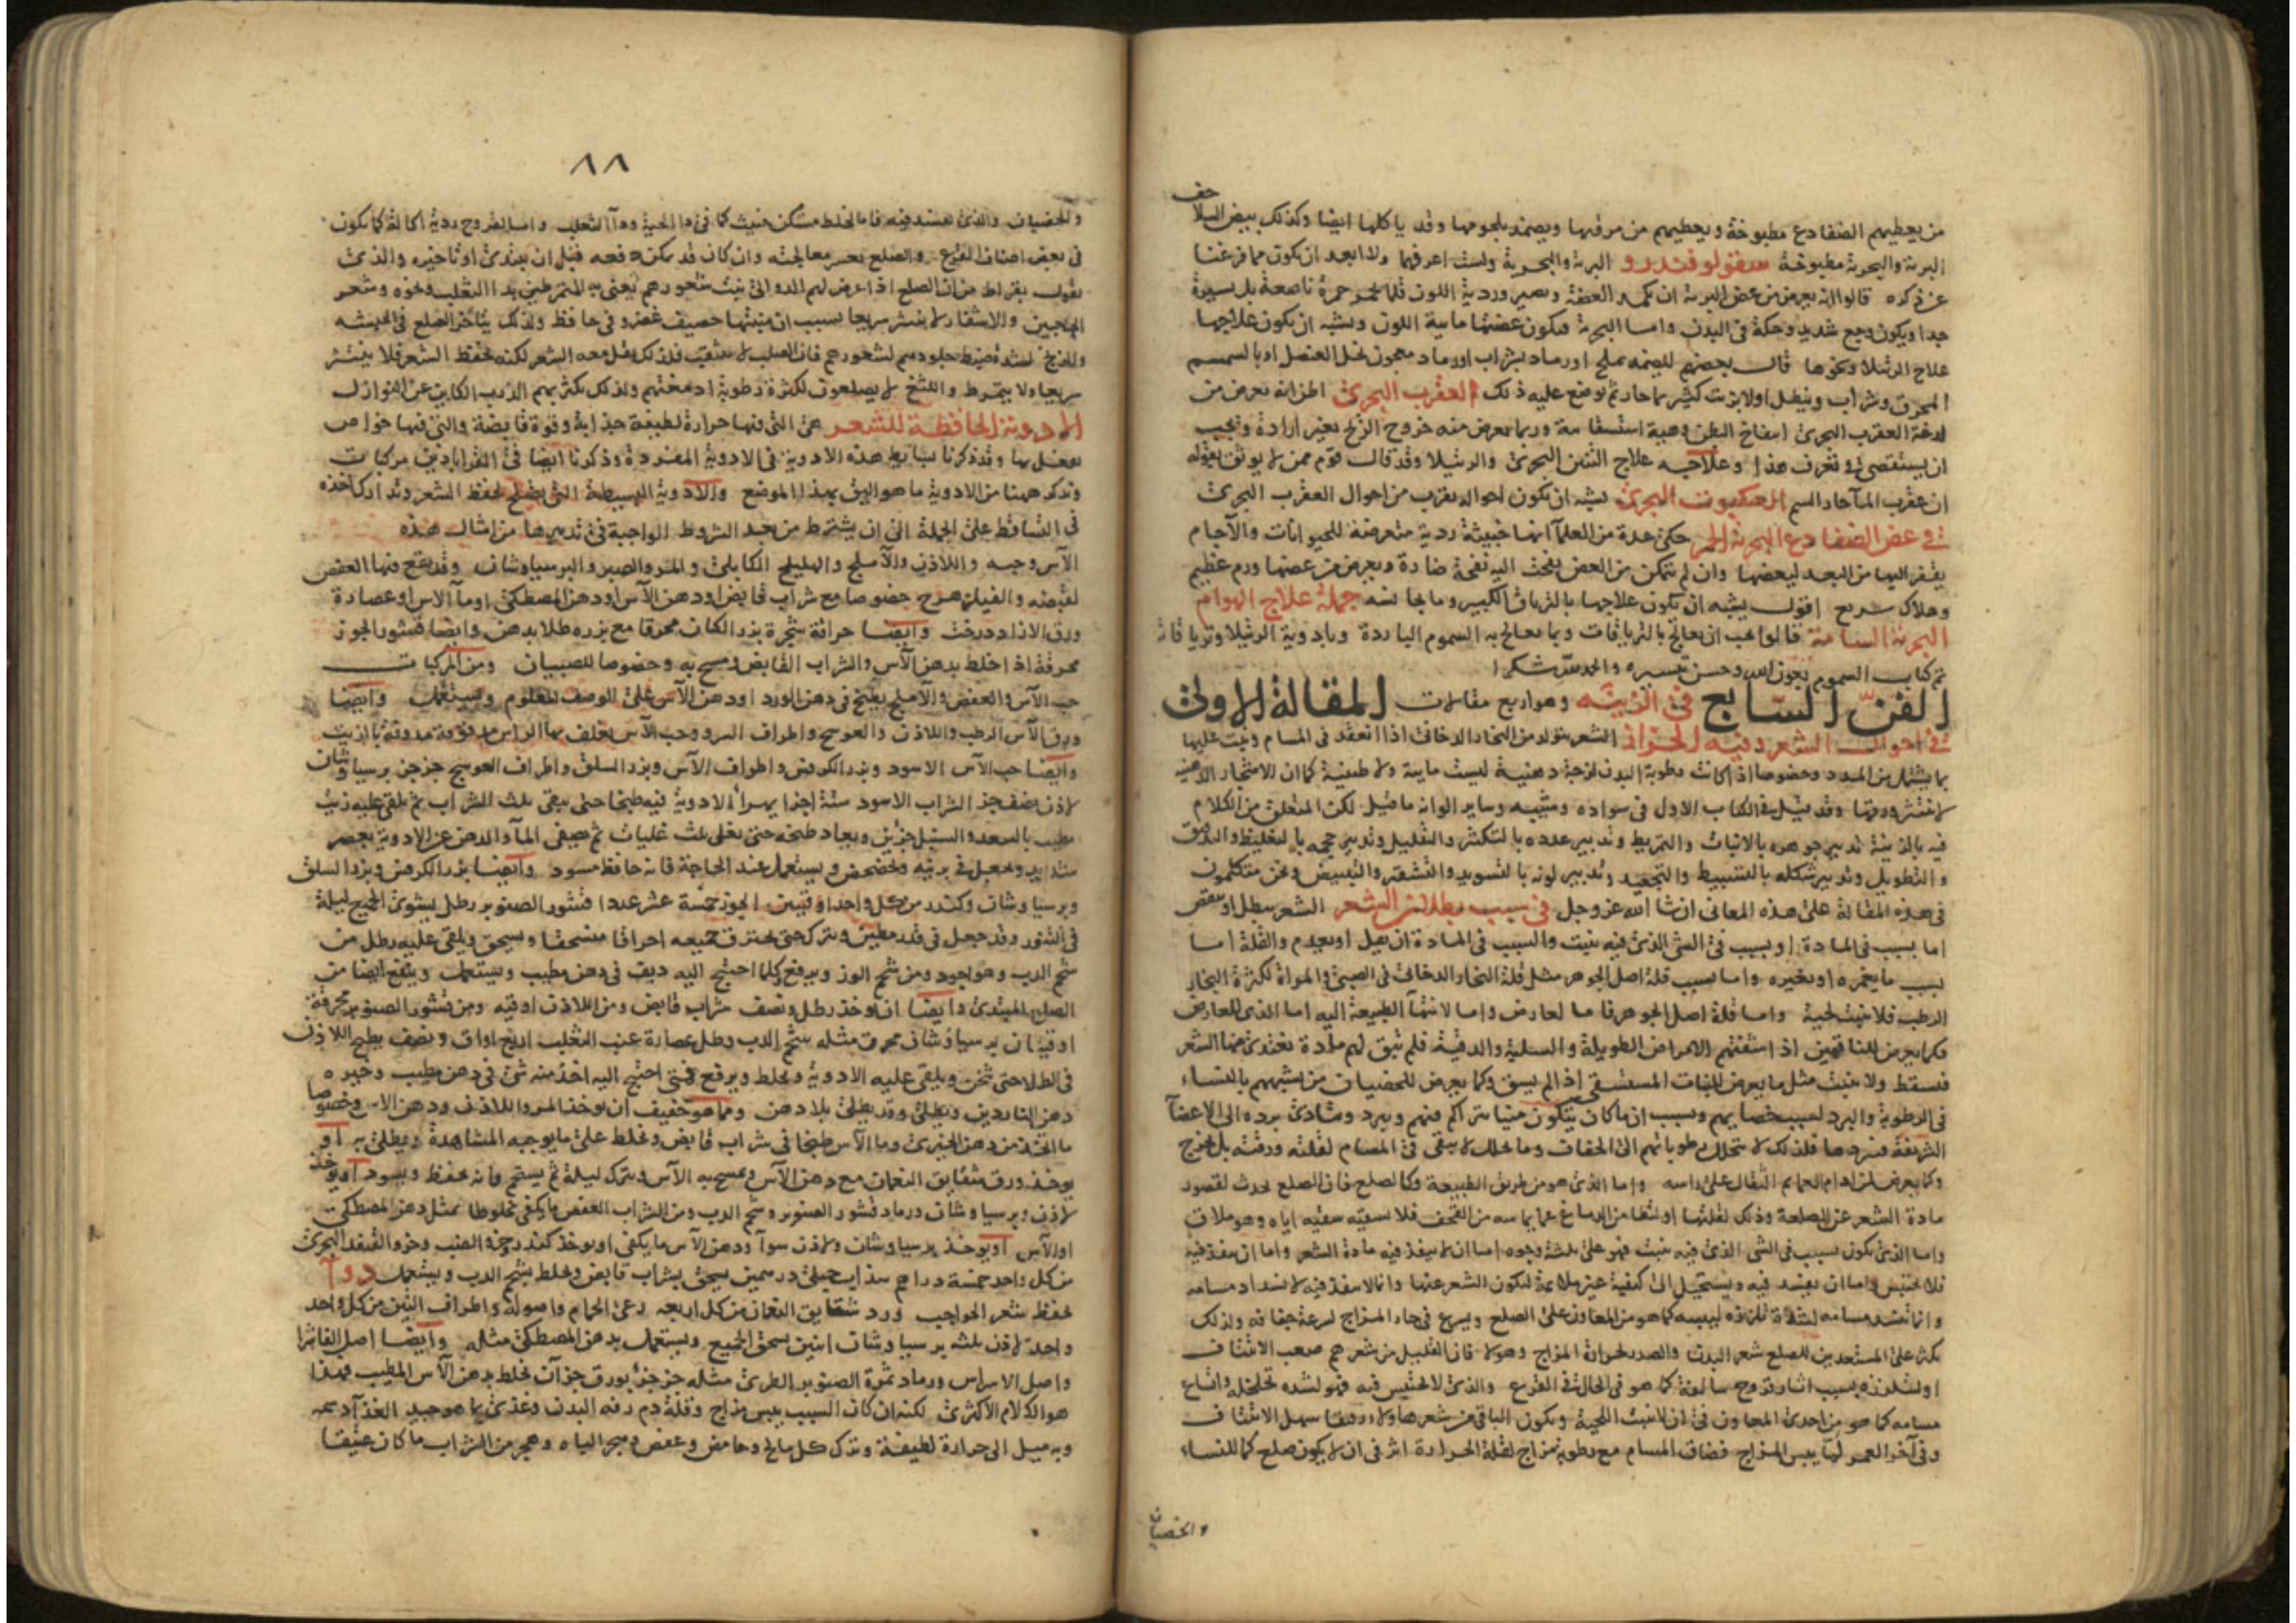 من يعطيهم الضفادع مطبوخة ويعطيهم من مرقها ويضمد بلحومها وقد ياكلها ايضا وكذلك بيض السلاحف
البرية والبحرية مطبوخة سقولوفندرو البرية والبحرية ولست اعرفهما ولا ابعد ان يكون مما فرغنا
عن ذكره قالوا انه يعرض من عض البرية ان يكمد العضة ويصير وردية اللون قلما تحمر حمرة ناصعة بل يسيرة
جدا ويكون وجع شديد وحكة في البدن واما البحرية فيكون عضتها مايية اللون ويشبه ان يكون علاجها
علاج الرتيلا ونحوها قال بعضهم لليضمد بملح او رماد بشراب او رماد معجون بخل العنصل او بالسمسم
المحرق وشراب وينطل اولا بزيت كثير بماء حار ثم يوضع عليه ذلك العقرب البحري اظن انه تعرض من
لدغة العقرب البحري انتفاخ البطن وهيئة استسقا ية وربما يعرض منه خروج الريح بغير ارادة ويجب
ان يستقصى في تعرف هذا وعلاجه علاج التنين البحري والرتيلا وقد قال قوم ممن لا يوثق بقوله
ان عقرب الماء حاد السم العنكبوت البحري يشبه ان تكون احواله بقرب من احوال العقرب البحري
في عض الضفادع البحرية الحمر حكى عدة من العلماء انها خبيثة ردية متعرضة للحيوانات والآجام
يقفز اليها من البعد ليعضها وان لم تتمكن من العض نفخت اليه نفخة ضارة ويعرض من عضها ورم عظيم
وهلاك سريع اقول يشبه ان تكون علاجها بالترياق الكبير وما يجانسه جملة علاج الهوام
البحرية السامة قالوا يجب ان يعالج بالترياقات وبما يعالج به السموم الباردة وبادوية الرتيلا وترياقاته
تم كتاب السموم بعون الله وحسن تيسيره والحمد لله شكرا
الفن السابع في الزينة وهو اربع مقالات المقالة الاولى
في احوال الشعر وفيه الحزاز الشعر يتولد من البخار الدخاني اذا انعقد في المسام ونبت عليها
بما يستمد من المدد وخصوصا اذا كانت رطوبة البدن لزجة دهنية ليست مايية ولا طينية كما ان الاشجار الدهنية
لا ينتثر ورقها وقد قيل في الكتاب الاول في سواده وشيبه وساير الوانه ما قيل لكن المتعلق من الكلام
فيه بالزينة تدبير جوهره بالانبات والتمريط وتدبير عدده بالتكثير والتقليل وتدبير حجمه بالتغليظ والدقة
والتطويل وتدبير شكله بالتسبيط والتجعيد وتدبير لونه بالتسويد والتشقير والتبييض ونحن متكلمون
في هذه المقالة على هذه المعاني ان شا الله عز وجل في سبب بطلان الشعر الشعر يبطل او ينقص
اما بسبب في المادة او بسبب في الشي الذي فيه ينبت والسبب في المادة ان يقل او يعدم والقلة اما
بسبب ما يغمره او يغيره واما بسبب قلة اصل الجوهر مثل قلة البخار الدخاني في الصبي والمراة لكثرة البخار
الرطب فلا ينبت لحية واما قلة اصل الجوهر فاما لعارض واما لانتهاء الطبيعة اليه اما الذي للعارض
فكما يعرض للناقهين اذا انهكتهم الامراض الطويلة والسلية والدقية فلم تبق لهم مادة تغتذي منها الشعر
فسقط ولا ينبت مثل ما يعرض للنبات المستسقي اذا لم يسق وكما يعرض للخصيان من تشبههم بالنساء
في الرطوبة والبرد لسبب خصايهم وبسبب ان ما كان يتكون منيا يتراكم فيهم ويبرد ويتادى برده الى الاعضآ
الشريفة فيبردها فلذلك لا يتحلل رطوباتهم الى الجفاف وما يحلل لا يبقى في المسام لقلته ورقته بل يخرج
وكما يعرض لمن ادام العمايم الثقال على راسه واما الذي هو من طريق الطبيعة وكالصلع فان الصلع يحدث لقصور
مادة الشعر عن الصلعة وذلك لقلتها او لتطامن الدماغ عما يماسه من القحف فلا يسقيه سقيه اياه وهو ملاق
واما الذي يكون بسبب في الشي الذي فيه ينبت فهو على ثلثة وجوه اما ان لا ينفذ فيه مادة الشعر واما ان ينفذ فيه
فلا يحتبس واما ان يفسد فيه ويستحيل الى كيفية غير ملايمة لتكون الشعر عنها وانما لا ينفذ فيه لانسداد مسامه
وانما تنسد مسامه لشدة تلززه ليبسه كما هو من المعاون على الصلع ويسرع في حار المزاج لسرعة جفافه ولذلك
يكثر على المستعدين للصلع شعر البدن والصدر لحرارة المزاج وهولا فان القليل من شعرهم صعب الانتتاف
او لتلززه بسبب اثار قروح سالفة كما هو في الحال في القرع والذي لا يحتبس فيه فهو لشدة تخلخله واتساع
مسامه كما هو من احدى المعاون في ان لا ينبت اللحية ويكون الباقي من شعرها ولا رقيقا سهل الانتتاف
وفي آخر العمر لما يبس المزاج فضاق المسام مع رطوبة مزاج لقلة الحرارة اثر في ان لا يكون صلع كما للنساء
والخصيان
٨٨
والخصيان والذي يفسد فيه فاما لخلط متمكن خبيث كما في دا الحية ودآ الثعلب واما لقروح ردية اكالة كما يكون
في بعض اصناف القرع والصلع يعسر معالجته وان كان قد يمكن دفعه قبل ان يبتدي او تاخيره والذي
يقول بقراط من ان الصلع اذا عرض لهم الدوالي نبت شعورهم يعني به المتمرطين بدا الثعلب ونحوه وشعر
الحاجبين والاشفار لا ينتثر سريعا بسبب ان منبتها حصيف غضروفي حافظ ولذلك يتاخر الصلع في الحبشة
والزنج لشدة ضبط جلودهم لشعورهم فان الصلب لا ينثقب فلذلك يقل معه الشعر لكنه يحفظ الشعر فلا ينتثر
سريعا ولا يتمرط واللثغ لا يصلعون لكثرة رطوبة ادمغتهم ولذلك يكثر بهم الذرب الكاين عن النوازل
الادوية الحافظة للشعر هي التي فيها حرارة لطيفة جذابة وقوة قابضة والتي فيها خواص
يفعل بها وقد ذكرنا بسايط هذه الادوية في الادوية المفردة وذكرنا ايضا في القراباذين مركبات
ونذكر ههنا من الادوية ما هو اليق بهذا الموضع والادوية البسيطة التي تصلح لحفظ الشعر وتدارك اخذه
في التساقط على الجملة الى ان يشترط من بعد الشروط الواجبة في تدبيرها من امثال هذه
الآس وحبه واللاذن والآملج والهليلج الكابلي والمر والصبر والبرسياوشان وقد يقع فيها العفص
لقبضه والفيلزهرج خصوصا مع شراب قابض او دهن الآس او دهن المصطكى او مآ الآس او عصارة
ورق الازاددرخت وايضا حراقة شجرة بزر الكتان محرقا مع بزره طلا بدهن وايضا قشور الجوز
محرقة اذا اخلط بدهن الآس والشراب القابض ومسح به وخصوصا للصبيان ومن المركبات
حب الآس والعفص والآملج يطبخ في دهن الورد او دهن الآس على الوصف المعلوم ويستعمل وايضا
ورق الآس الرطب واللاذن والعوسج واطراف السرو وحب الآس يغلف بها الراس مدقوقة مدوفة بالزيت
وايضا حب الآس الاسود وبزر الكرفس واطراف الآس وبزر السلق واطراف العوسج جز جز برسياوشان
لاذن نصف جز الشراب الاسود ستة اجزا يهرأ الادوية فيه طبخا حتى يبقى ثلث الشراب ثم يلقى عليه زيت
مطيب بالسعد والسنبل جزئين ويعاد طبخه حتى يغلى ثلث غليات ثم يصفى المآ والدهن عن الادوية بعصر
شديد ويجعل في برنية ويخضخض ويستعمل عند الحاجة فانه حافظ مسود وايضا بزر الكرفس وبزر السلق
وبرسياوشان وكندر من كل واحد اوقيتين الجوز خمسة عشر عددا قشور الصنوبر رطل يشوى الجميع ليلة
في التنور وقد جعل في قدر مطين ويترك حتى يحترق جميعه احراقا منسحقا ويسحق ويلقى عليه رطل من
شحم الدب وهو اجود ومن شحم الوز ويرفع كلما احتيج اليه ديف في دهن مطيب ويستعمل وينفع ايضا من
الصلع المبتدي وايضا ان يوخذ رطل ونصف شراب قابض ومن اللاذن اوقية ومن قشور الصنوبر محرقة
اوقيتان برسياوشان محرق مثله شحم الدب رطل عصارة عنب الثعلب اربع اواق ونصف يطبخ اللاذن
في الطلا حتى يثخن ويلقى عليه الادوية ويخلط ويرفع فمتى احتيج اليه اخذ منه شي في دهن مطيب وخيره
دهن الناردين ويطلى وقد يطلى بلا دهن ومما هو خفيف ان يوخذ المر واللاذن ودهن الآس وخصوصا
ما اتخذ من دهن الخيري وما الآس طبخا في شراب قابض ويخلط على ما يوجبه المشاهدة ويطلى به او
يوخذ ورق شقايق النعمان مع دهن الآس ويمسح به الآس ويترك ليلة ثم يستحم فانه يحفظ ويسود او يوخذ
لاذن وبرسياوشان ورماد قشور الصنوبر وشحم الدب ومن الشراب العفص ما يكفي مخلوطا بمثل دهن المصطكى
او الآس او يوخذ برسياوشان ولاذن سوآ ودهن الآس ما يكفي او يوخذ كندر وخرو الضب وخرو القنفذ البحري
من كل واحد خمسة دراهم سذاب جبلي درهمين يسحق بشراب قابض ويخلط بشحم الدب ويستعمل دوآ
يحفظ شعر الحواجب ورد شقايق النعمان من كل اربعة رعى الحمام واصوله واطراف التين من كل واحد
واحد لاذن ثلثة برسياوشان اثنين يسحق الجميع ويستعمل بدهن المصطكى مثله وايضا اصل الفاشرا
واصل الاسراس ورماد ثمرة الصنوبر الطرى مثله جز جزؤ بورق جزآن يخلط بدهن الآس المطيب فهذا
هو الكلام الاكثري لكنه ان كان السبب يبس مزاج وقلة دم رفه البدن وغذى بما هو جيد الغذآ دسمه
وبه ميل الى حرارة لطيفة وترك كل مالح وحامض وعفص وهجر المياه وهجر من الشراب ما كان عتيقا